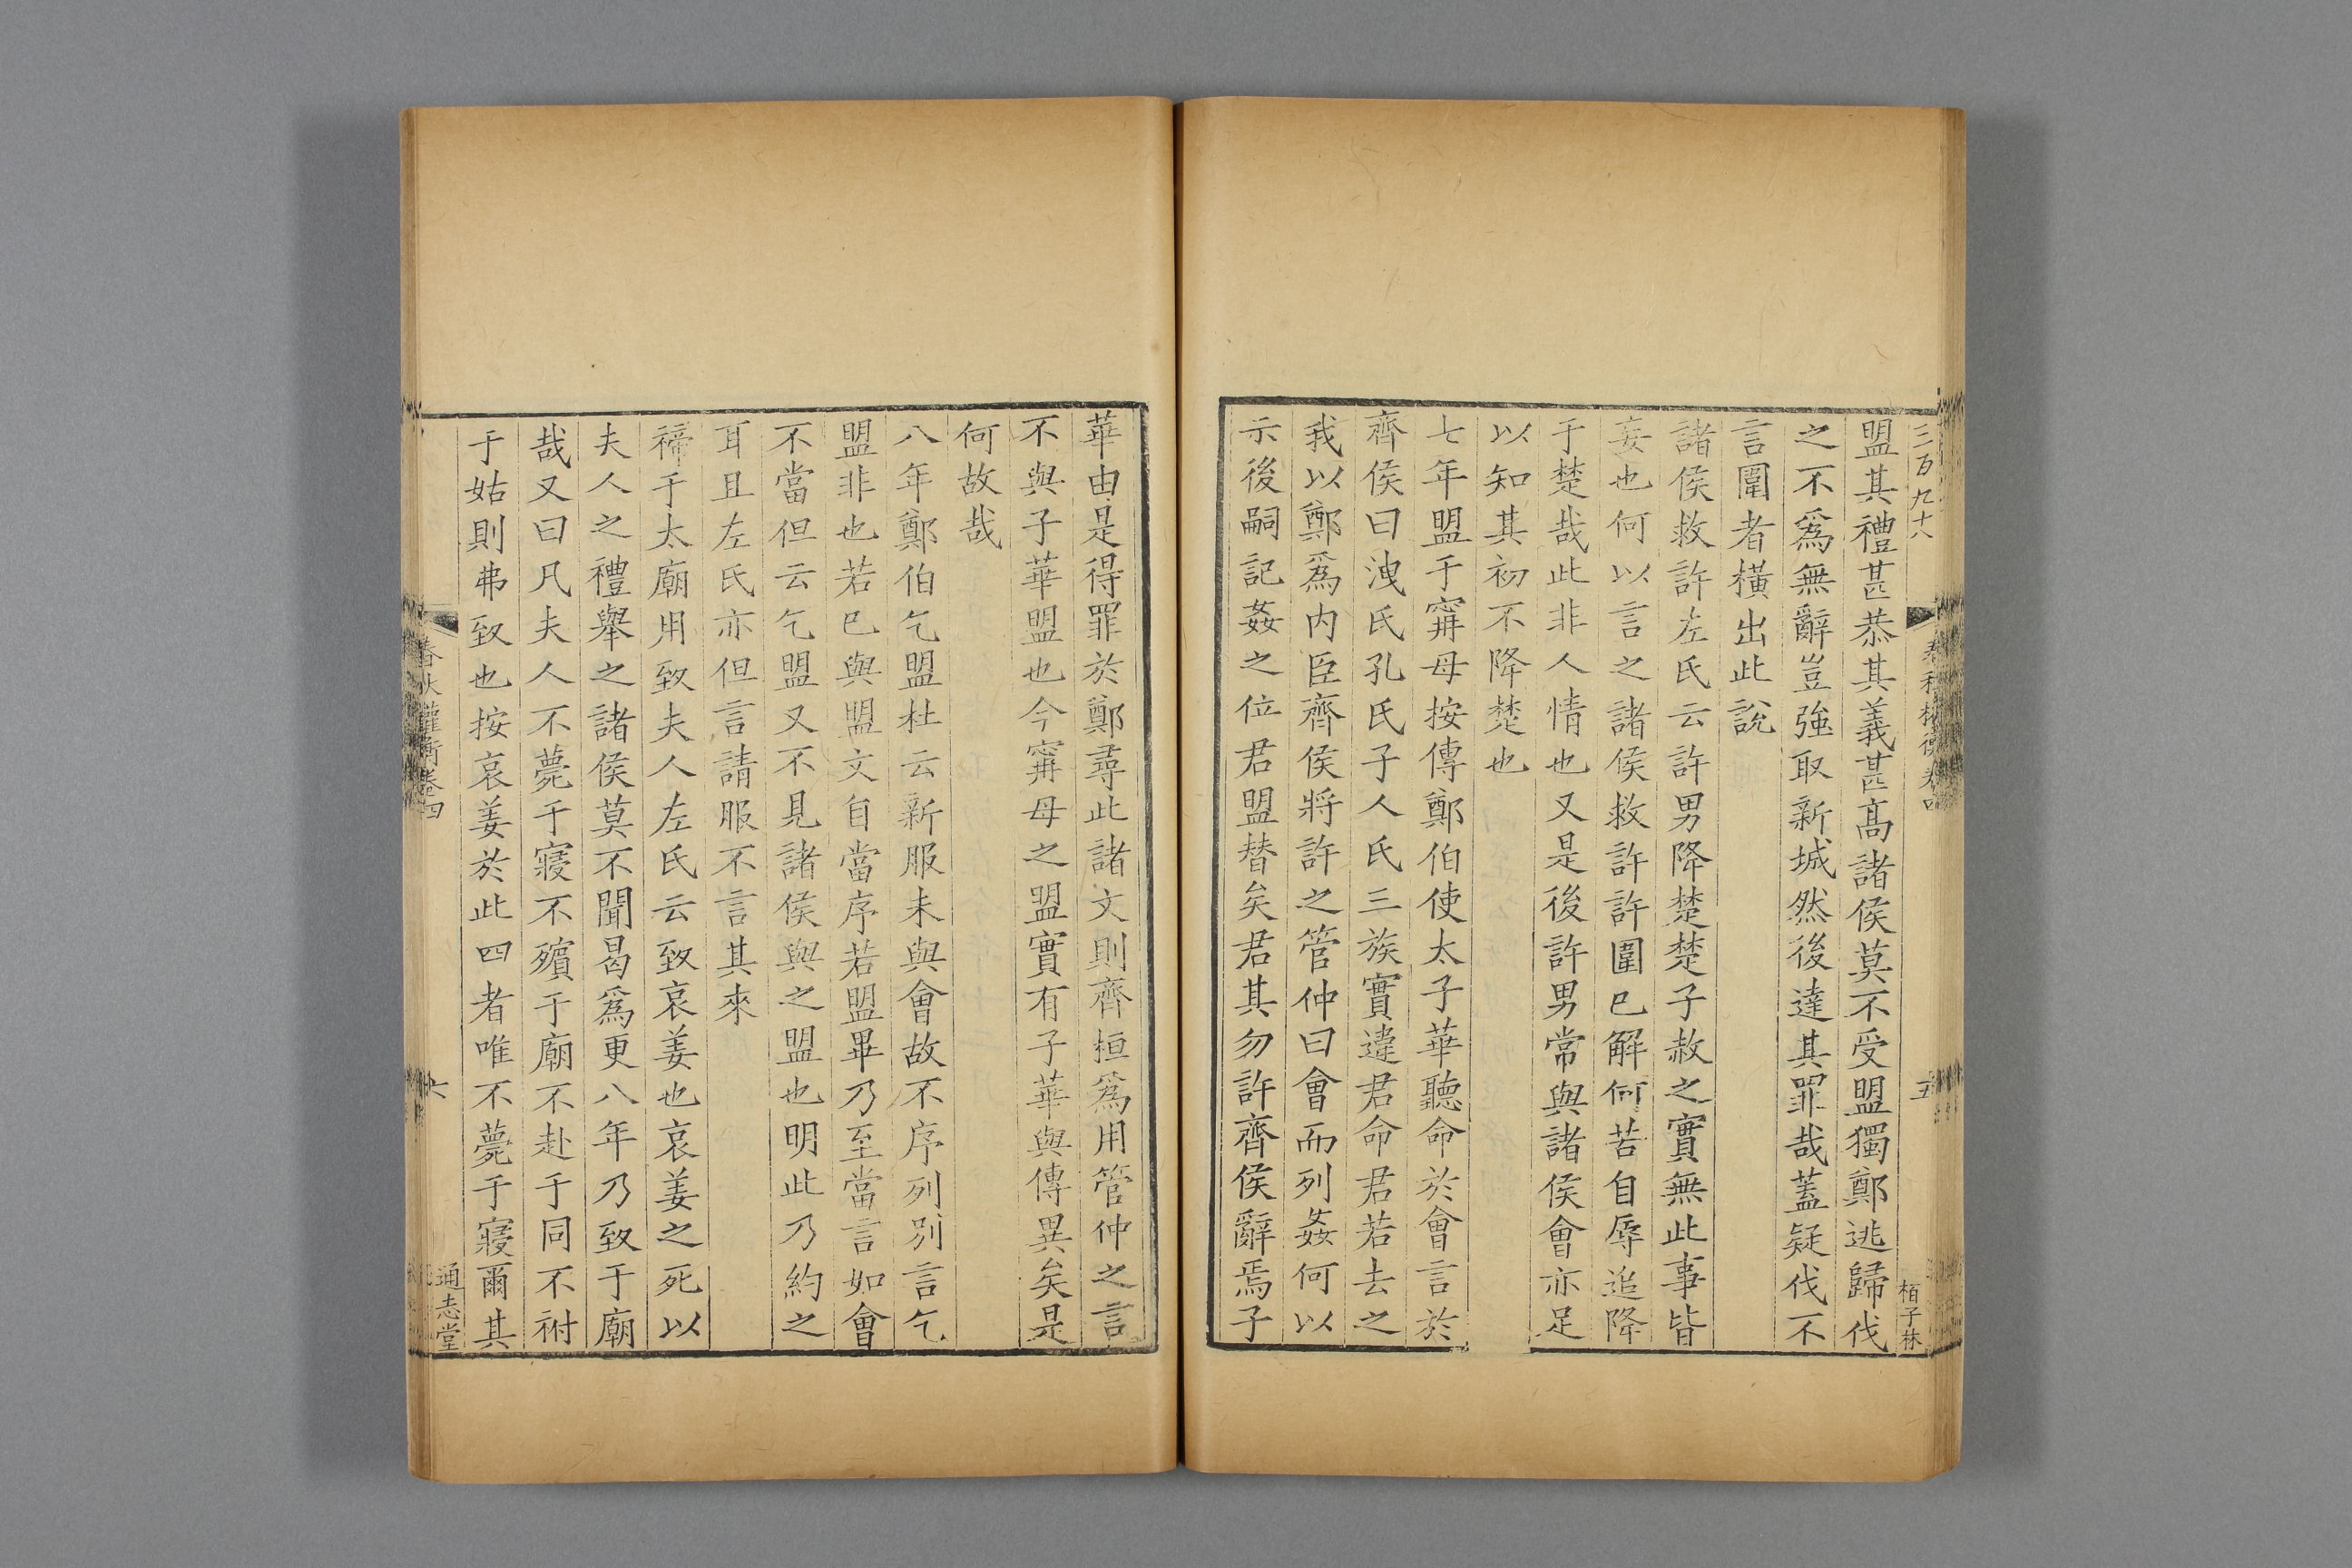 三百九十八
春秋權衡卷四
五
栢子林
盟其禮甚恭其義甚髙諸侯莫不受盟獨鄭逃歸伐
之不爲無辭豈強取新城然後達其罪哉蓋疑伐不
言圍者横出此說
諸侯救許左氏云許男降楚楚子赦之實無此事皆
妄也何以言之諸侯救許許圍已解何苦自辱追降
于楚哉此非人情也又是後許男常與諸侯會亦足
以知其初不降楚也
七年盟于寗母按傳鄭伯使太子華聽命於會言於
齊侯曰洩氏孔氏子人氏三族實違君命君若去之
我以鄭爲内臣齊侯將許之管仲曰會而列姦何以
示後嗣記姦之位君盟替矣君其勿許齊侯辭焉子
華由是得罪於鄭尋此諸文則齊桓爲用管仲之言
不與子華盟也今寗母之盟實有子華與傳異矣是
何故哉
八年鄭伯乞盟杜云新服未與會故不序列别言乞
盟非也若已與盟文自當序若盟畢乃至當言如會
不當但云乞盟又不見諸侯與之盟也明此乃約之
耳且左氏亦但言請服不言其來
禘于太廟用致夫人左氏云致哀姜也哀姜之死以
夫人之禮舉之諸侯莫不聞曷爲更八年乃致于廟
哉又曰凡夫人不薨于寢不殯于廟不赴于同不祔
于姑則弗致也按哀姜於此四者唯不薨于寢爾其
春秋權衡卷四
六
通志堂